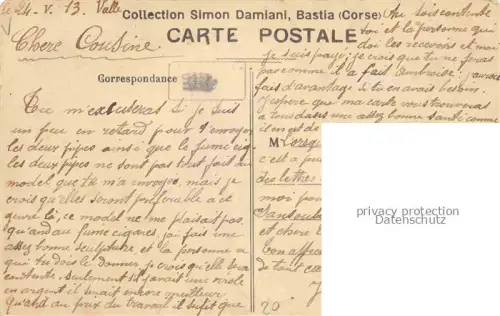 24. V. 13. Valle
Collection Simon Damiani, Bastia (Corse)
CARTE POSTALE
Chere Cousine
Correspondance
Tu m'excuseras si je suis
un peu en retard pour t'envoyer
les deux pipes ainsi que le fume cig
les deux pipes ne sont pas tout fait au
model que tu m'a envoyés, mais je
crois qu'elles seront préférable a cet
œuvre là, ce model ne me plaisait pas,
quand au fume cigares, j'ai fais une
assez bonne sculpture et la personne a
qui tu dois le donner je crois qu'elle sera
contente, seulement s'il y avait une virole
en argent il serait encore meilleur
quand au prix du travail il suffit que
tu sois contente
toi et la personne qui
doi les recevoir et moi
je suis payé; je crois que tu ne feras
pas comme il a fait Ambroise;
fais d'avantage si tu en avais besoin.
J'espère que ma carte vous trouveras
a tous dans une assez bonne santé comme
il en est de
M
c'est a
des lettres
moi pour
et chere
bon affec
de tant
20
privacy protection
Datenschutz